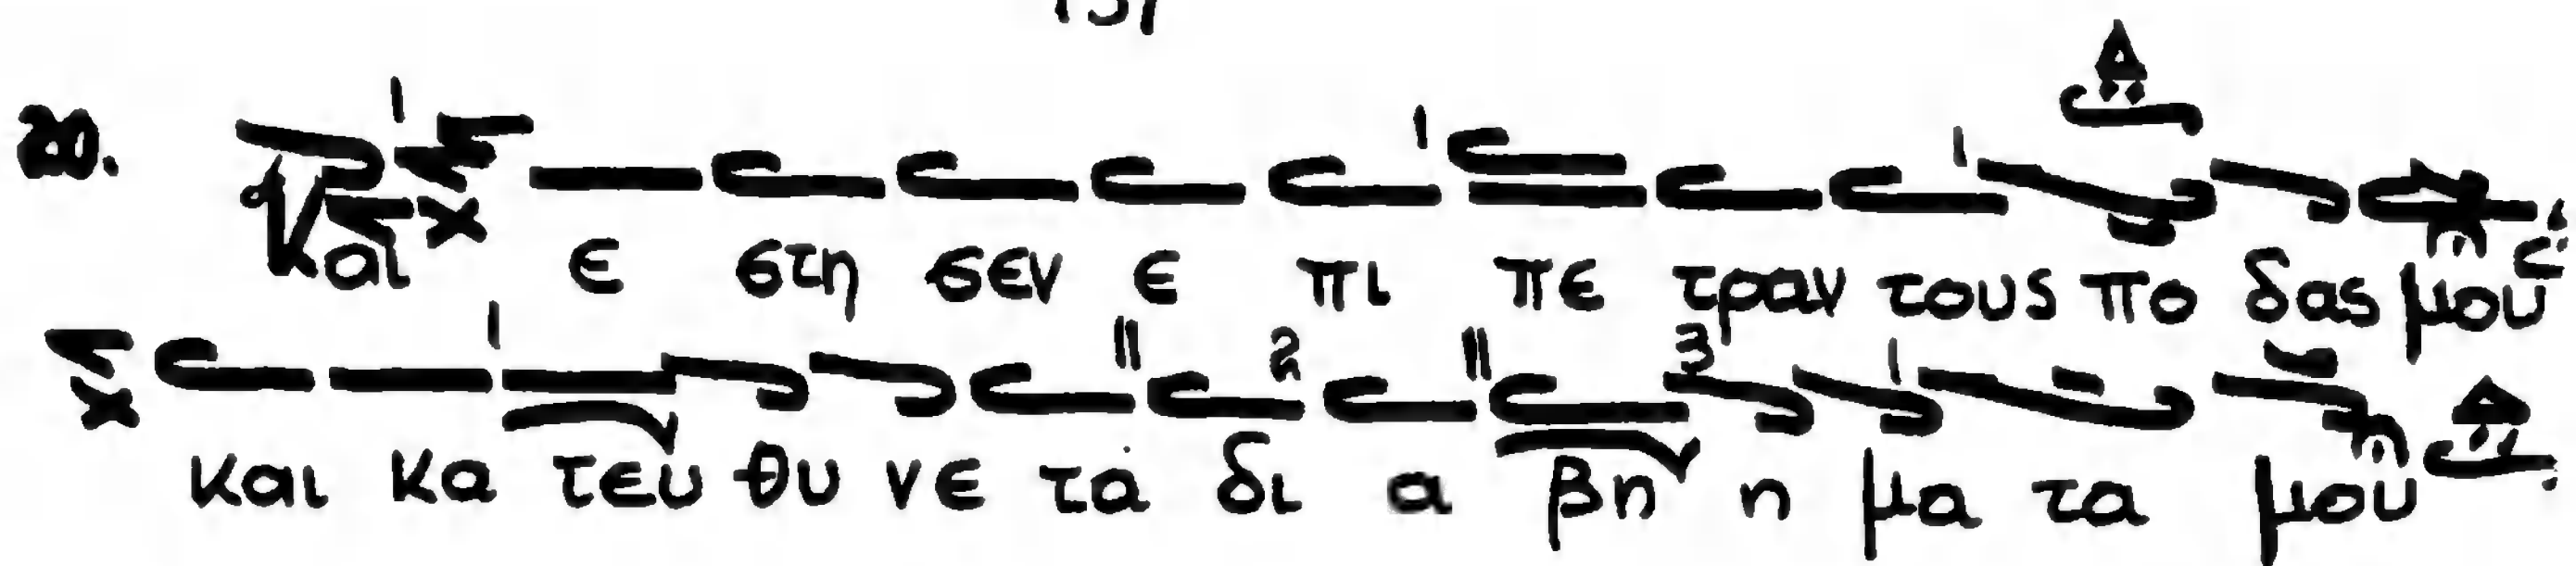 20. Και ε στη σεν ε πι πε τραν τους πο δας μου
και κα τευ θυ νε τα δι α βη η μα τα μου